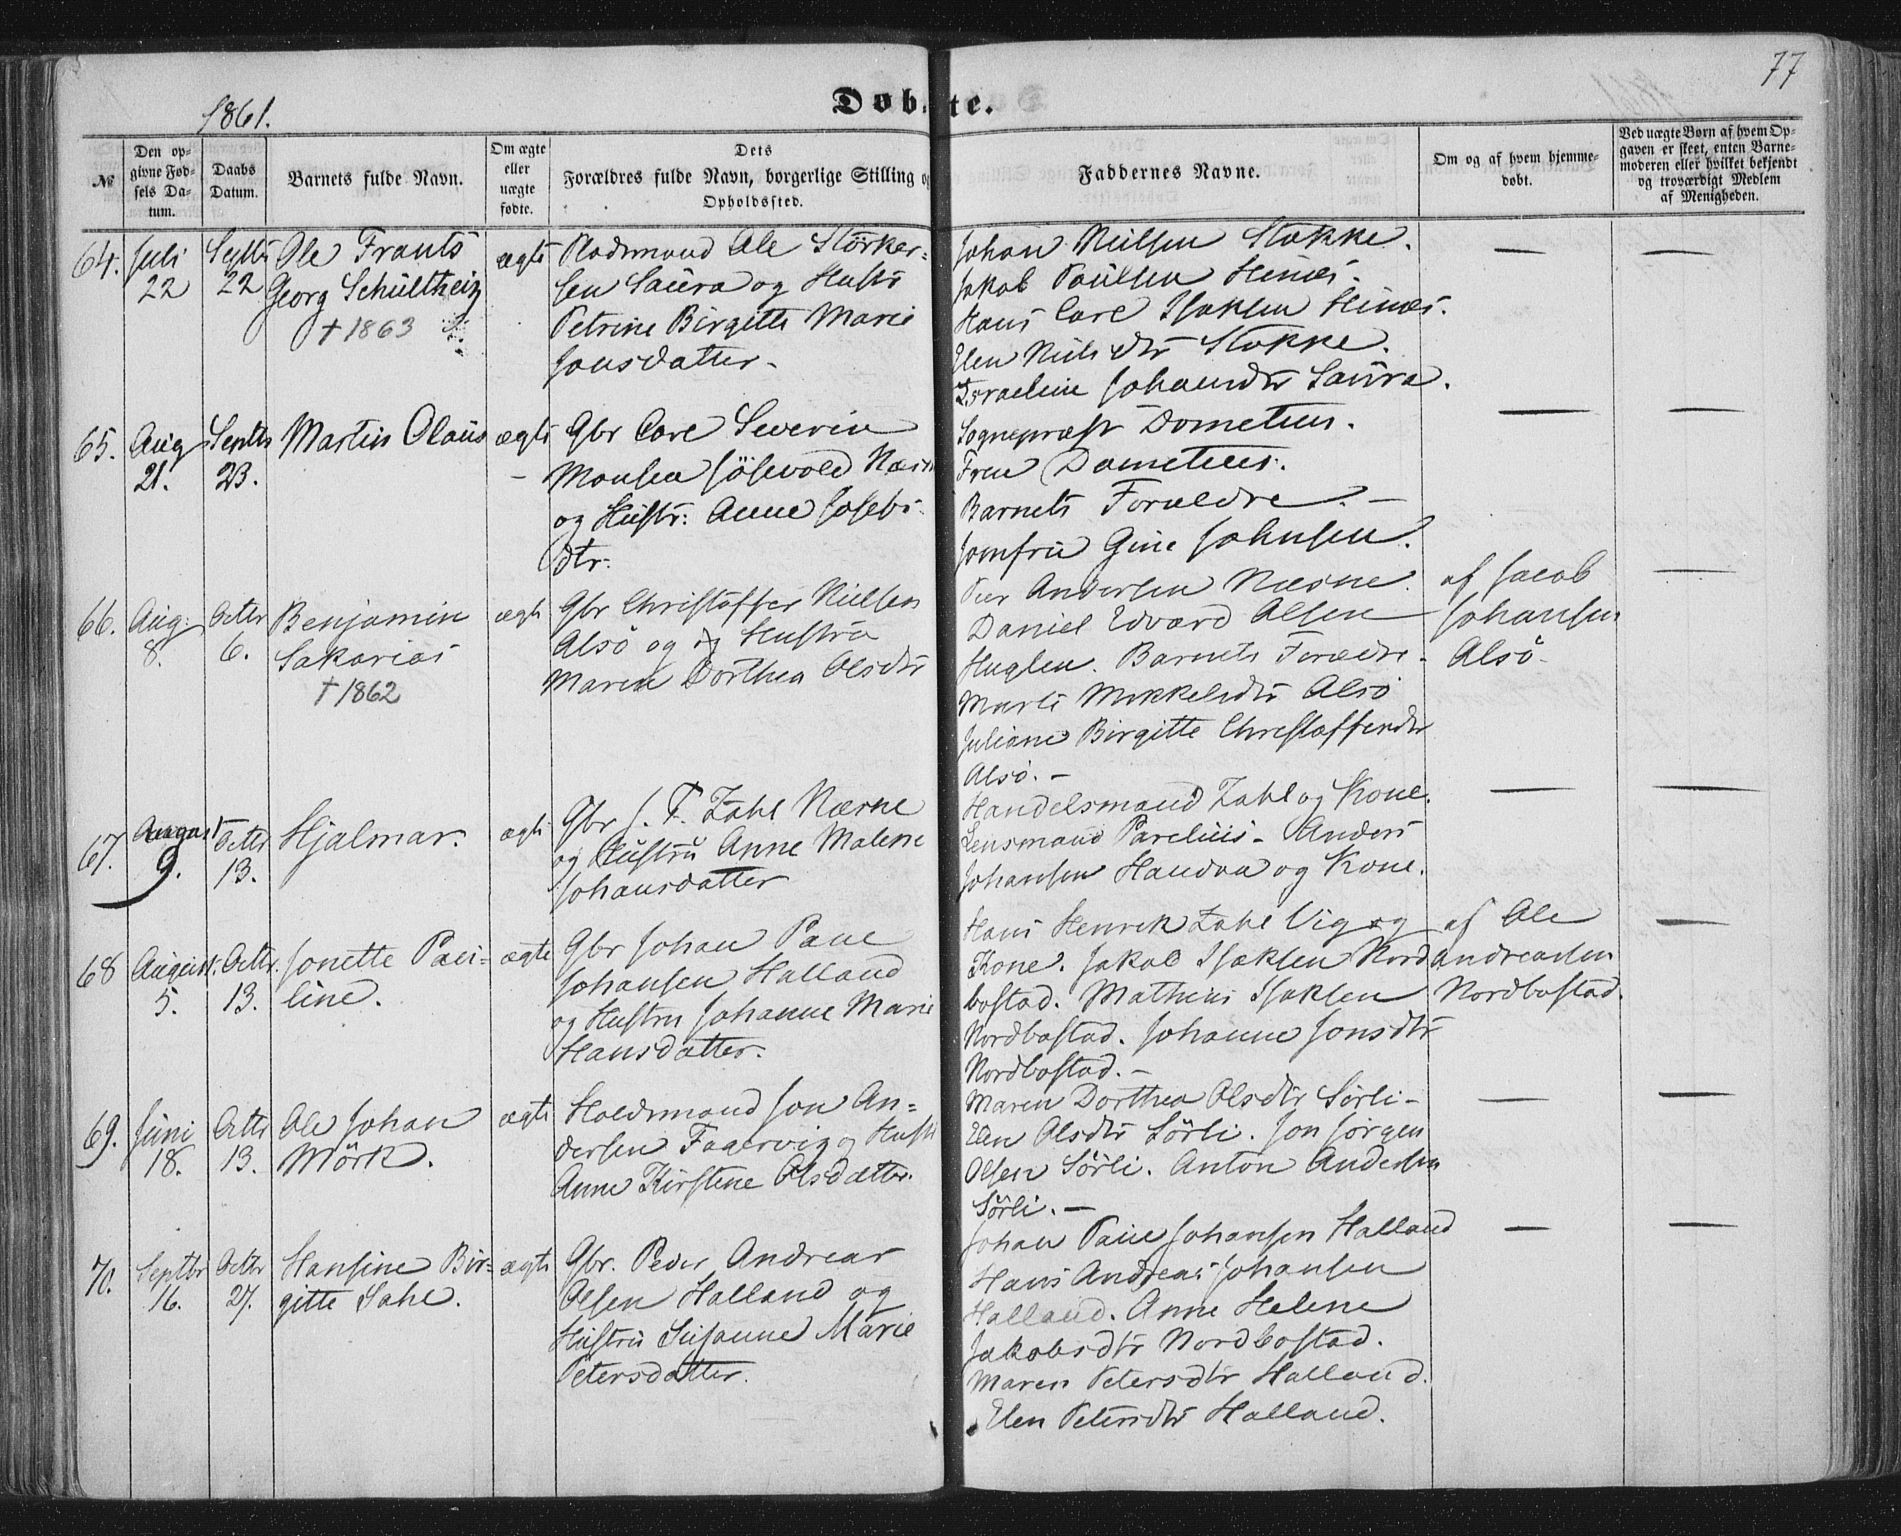 77
1861.
Døbte.
№
Den opgivne Fødsels Datum.
Daabs Datum.
Barnets fulde Navn.
Om ægte eller uægte fødte.
Dets Forældres fulde Navn, borgerlige Stilling og Opholdssted.
Faddernes Navne.
Om og af hvem hjemmedøbt.
Ved uægte Børn af hvem Opgaven er skeet, enten Barnemoderen eller hvilket bekjendt og troværdigt Medlem af Menigheden.
64.
Juli
22
Septbr
22
Ole Frants
Georg Schültheiz
† 1863
ægte
Pladsmand Ole Störker=
sen Saura og Hustr
Petrine Birgitte Marie
Jonsdatter -
Johan Nielsen Stokke.
Jakob Paulsen Hinæs.
Hans Carl Isaksen Hinæs.
Elen Nielsdtr Stokke.
Israeline Johansdtr Saura.
—
—
65.
Aug
21.
Septbr
23.
Martin Olaus
ægte
-
Gbr Carl Severin
Monsen Jösevold Næsne
og Hustr: Anne Josebs
dtr.
Sognepræst Dometius.
Frue Dometius.
Barnets Forældre. -
Jomfru Gine Johnsen.
Peer Andersen Næsne.
—
—
66.
Aug.
8.
Octbr
6.
Benjamin
Sakarias
† 1862
ægte
Gbr Christoffer Nielsen
Alsö og Hustru
Maren Dorthea Olsdtr
Daniel Edvard Olsen
Huglen. Barnets Forældre.
Marti Mikkelsdtr Alsö
Juliane Birgitte Christoffersdtr
Alsö. -
af Jacob
Johansen
Alsö.
—
67.
August
9.
Octbr
13.
Hjalmar.
ægte
Gbr J. F. Zahl Næsne
og Hustru Anne Malene
Johansdatter
Handelsmand Zahl og Kone.
Lensmand Parelius - Anders
Johansen Handva og Kone.
—
—
68
August.
5.
Octbr.
13.
Jonette Pau=
line.
ægte
Gbr Johan Paul
Johansen Halland
og Hustru Johanne Marie
Hansdatter.
Hans Henrik Zahl Vig og
Kone. Jakob Isaksen Nord
bostad. Mathias Isaksen
Nordbostad. Johanne Jonsdtr
Nordbostad. -
af Ole
Andreassen
Nordbostad.
—
69.
Juni
18.
Octbr
13.
Ole Johan
Mörk.
ægte
Holdsmand Jon An=
dersen Fagervig og Hustr
Anne Kirstene Olsdatter.
Maren Dorthea Olsdtr Sörli -
Elen Olsdtr Sörli. Jon Jörgen
Olsen Sörli. Anton Andersen
Sörli. -
—
—
70.
Septbr
16.
Octbr
27.
Hansine Bir=
gitte Sahl.
ægte
Gbr. Peder Andreas
Olsen Halland og
Hustru Susanne Marie
Petersdatter.
Johan Paul Johansen Halland
Hans Andreas Johansen
Halland. Anne Helene
Jakobsdtr Nordbostad.
Maren Petersdtr Halland.
Elen Petersdtr Halland.
—
—